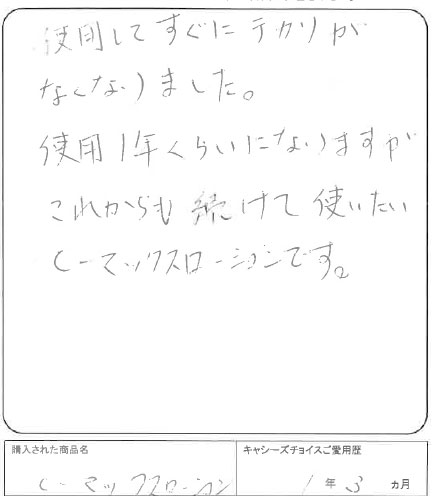 使用してすぐにテカリが
なくなりました。
使用1年くらいになりますが
これからも続けて使いたい
Cーマックスローションです。
購入された商品名
キャシーズチョイスご愛用歴
Cーマックスローション
1年3ヵ月